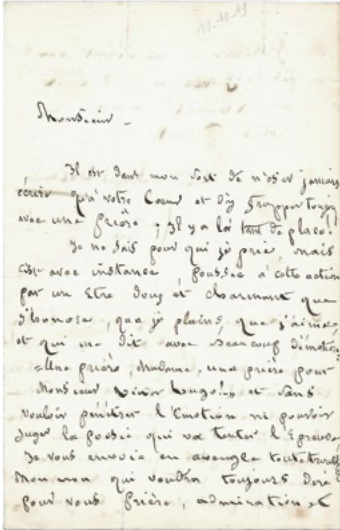 Monsieur -
Il est dans mon sort de n'oser jamais
écrire qu'à votre Coeur et d'y frapper toujours
avec une prière ; Il y a là tant de place.
Je ne sais pour qui je prie, mais
c'est avec instance, poussée à cette action
par un Etre doux et charmant que
j'honore, que je plains, que j'aime,
et qui me dit avec beaucoup d'émotion
= Une prière, Madame, une prière pour
Monsieur Victor hugo! = et sans
vouloir pénétrer l'Emotion ni pouvoir
juger la poësie qui va tenter l'Epreuve
Je vous envoie en aveugle toute
mon nom, qui voudra toujours dire
pour vous prière, admiration et